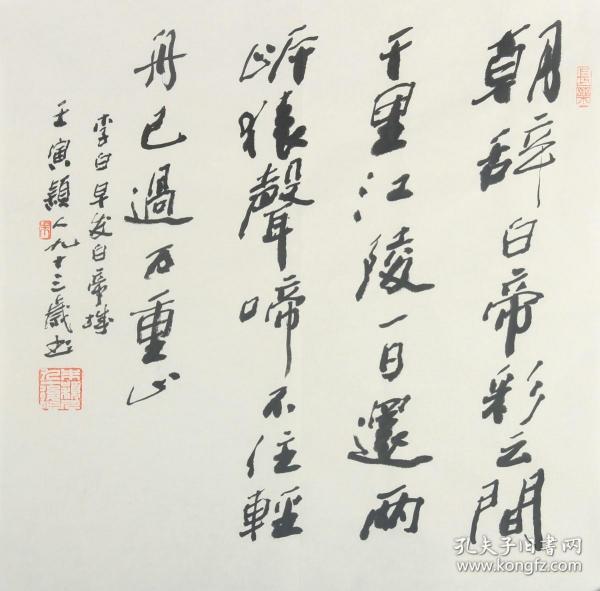 朝辞白帝彩云間
千里江陵一日還兩
岸猿聲啼不住輕
舟已過万重山
李白早发白帝城
壬寅穎人九十三歲书
長樂
孔夫子旧书网
www.kongfz.com